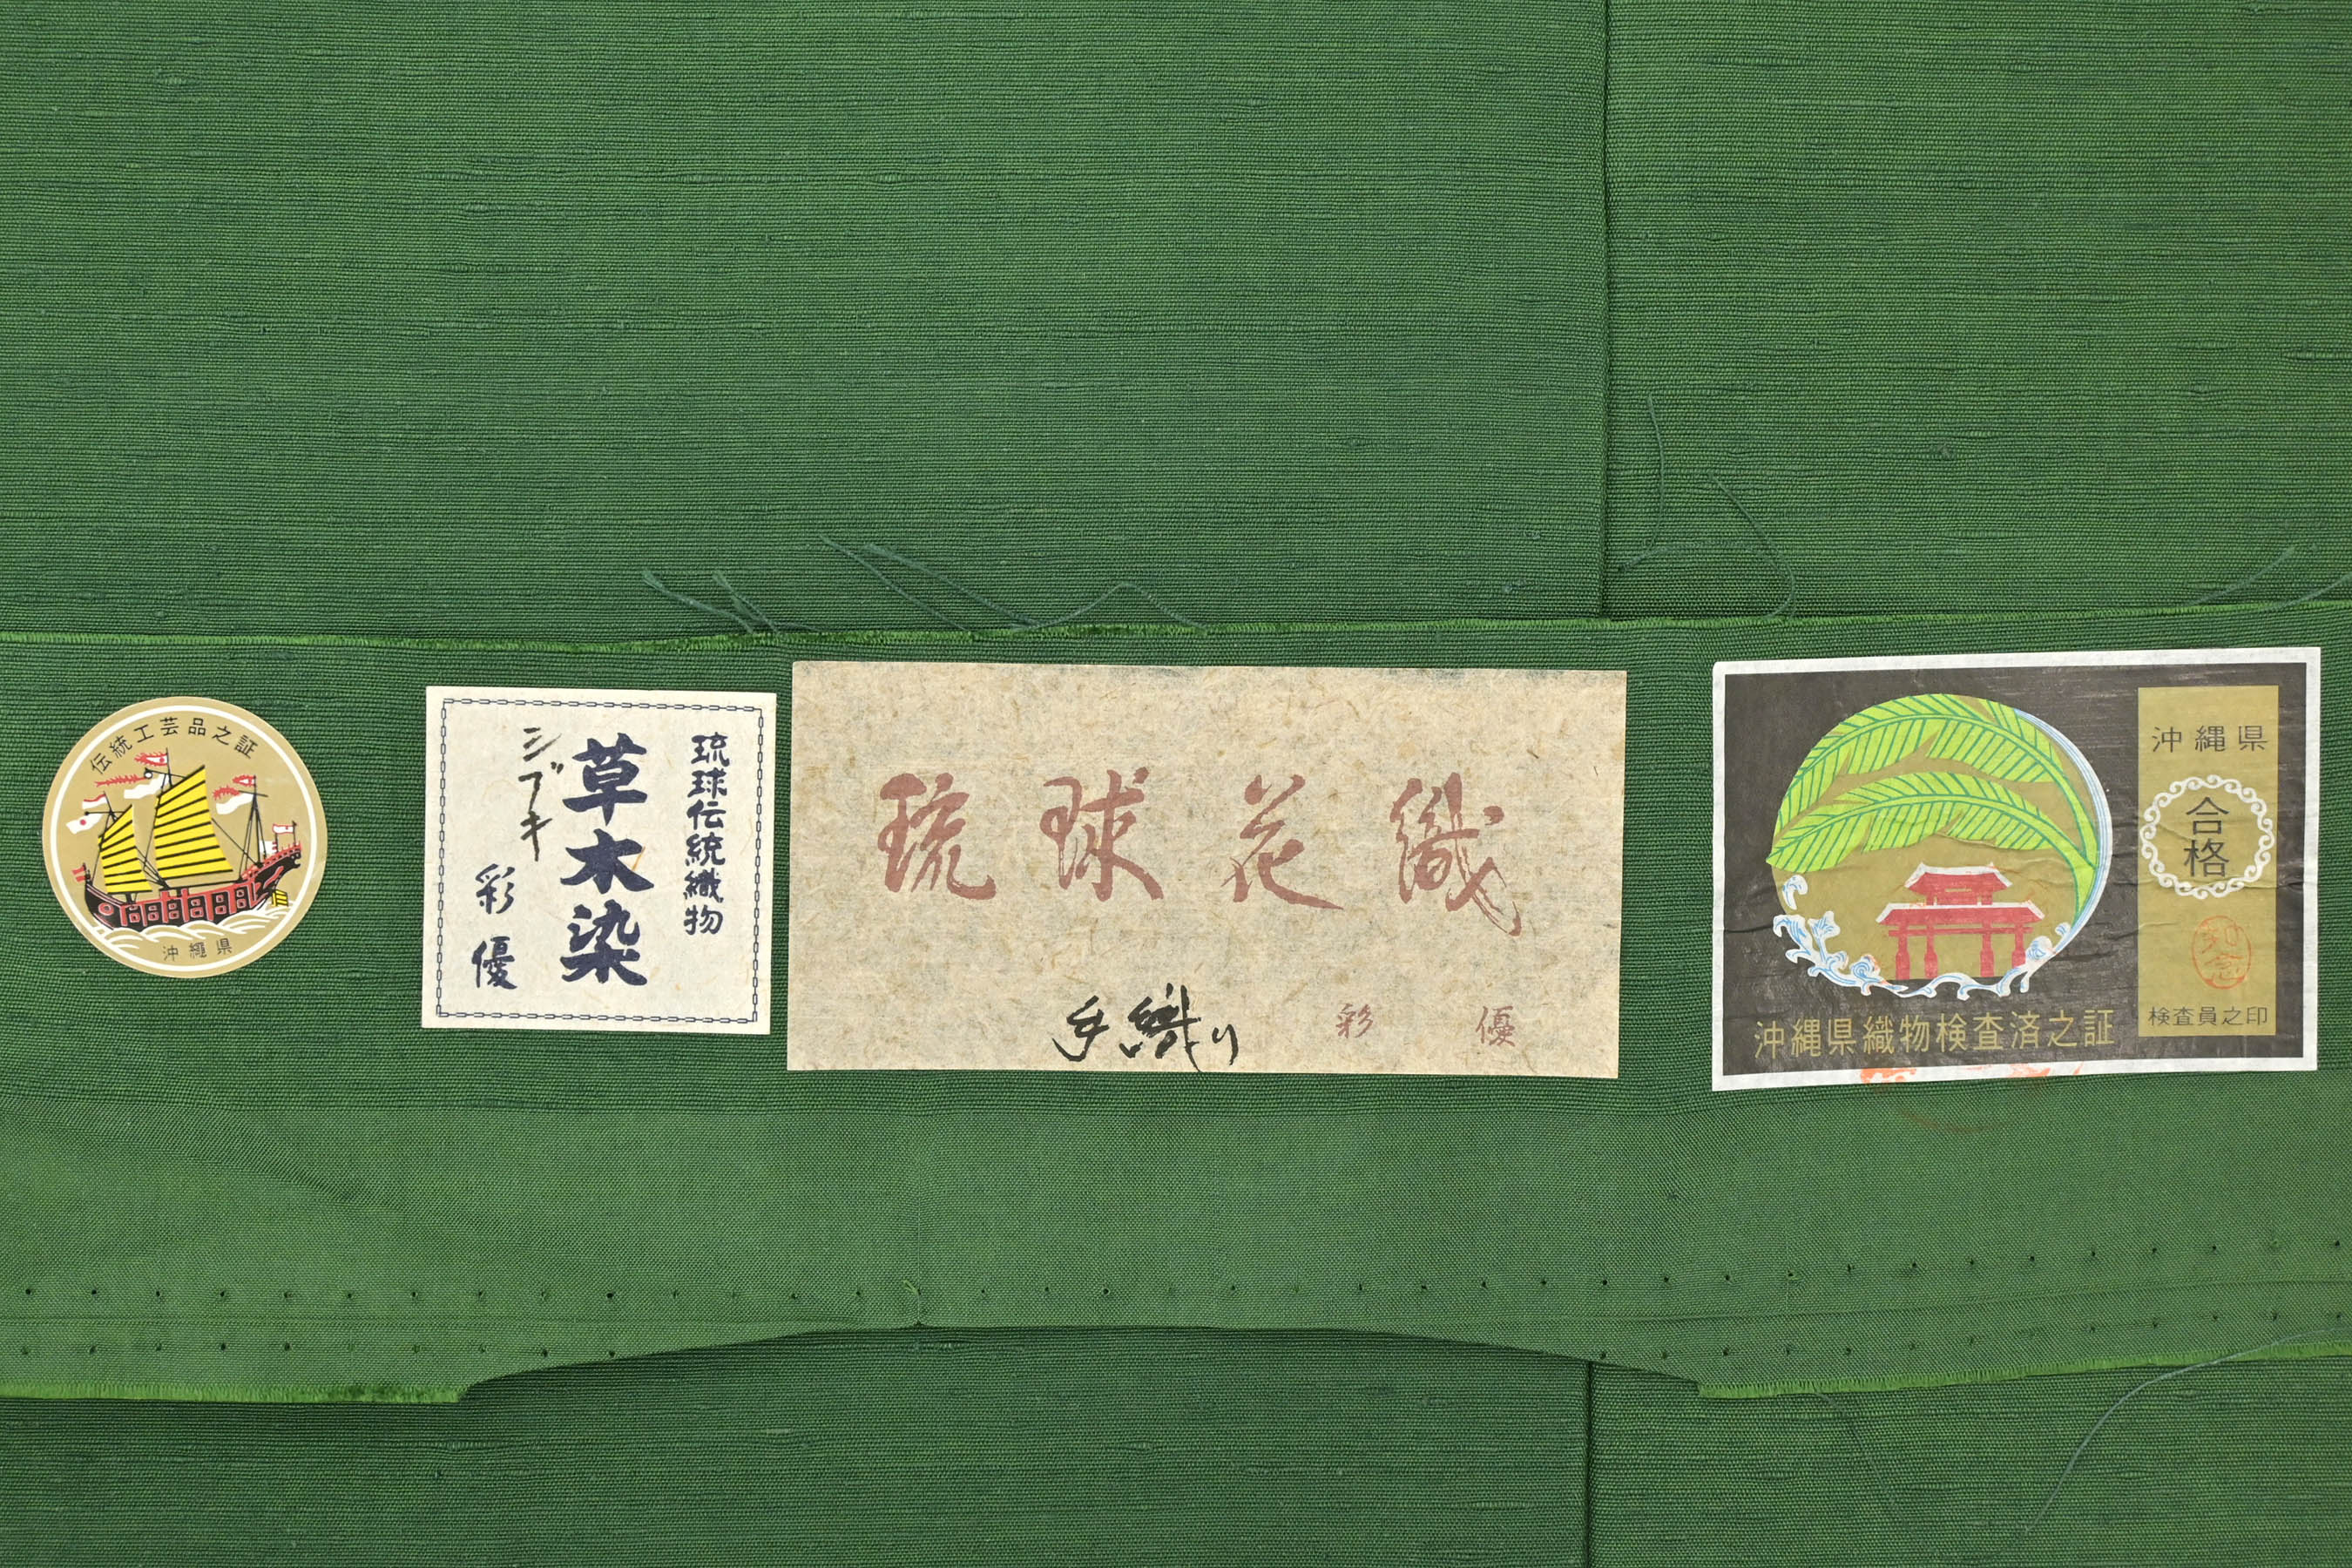 伝統工芸品之証
沖縄県
琉球伝統織物
草木染
シブキ
彩優
琉球花織
手織り
彩優
沖縄県織物検査済之証
沖縄県
合格
知念
検査員之印